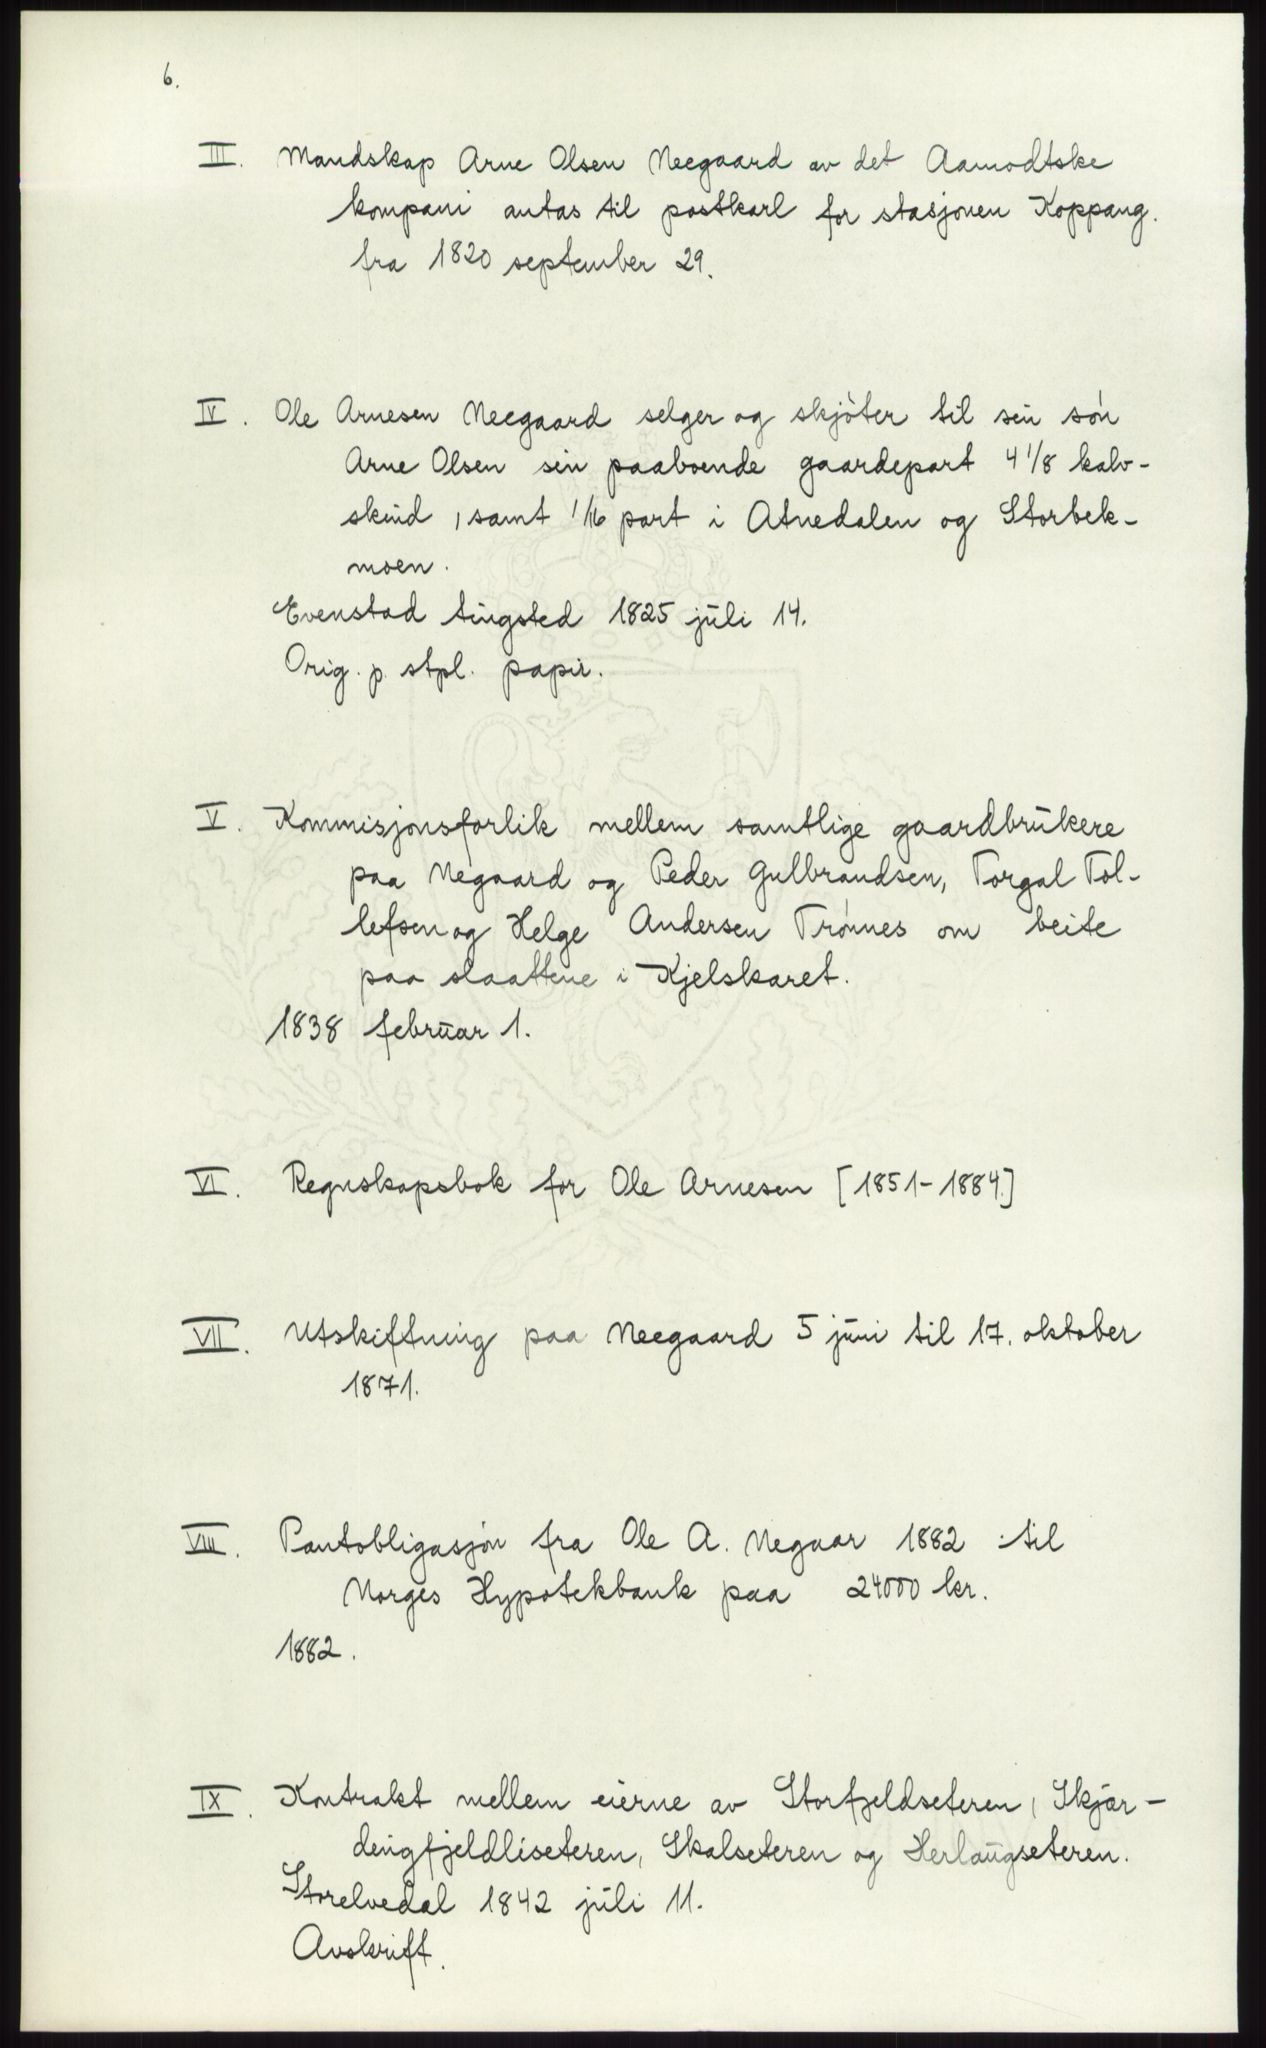 6.
III. Mandskap Arne Olsen Neegaard av det Aamodtske
kompani antas til postkarl for stasjonen Koppang.
fra 1820 september 29.
IV. Ole Arnesen Neegaard selger og skjøter til sin søn
Arne Olsen sin paaboende gaardepart 4 1/8 kalv-
skind, samt 1/16 part i Atnedalen og Storbek-
moen.
Evenstad tingsted 1825 juli 14.
Orig. p. stpl. papir.
V. Kommisjonsforlik mellem samtlige gaardbrukere
paa Negaard og Peder Gulbrandsen, Torgal Tol-
lefsen og Helge Andersen Trønnes om beite
paa slaattene i Kjelskaret.
1838 februar 1.
VI. Regnskapsbok for Ole Arnesen [1851-1884.]
VII. Utskiftning paa Neegaard 5 juni til 17. oktober
1871.
VIII. Pantobligasjon fra Ole A. Negaar 1882 til
Norges Hypotekbank paa 24000 kr.
1882.
IX. Kontrakt mellem eierne av Storfjeldseteren, Skjær-
dingfjeldliseteren, Skalseteren og Herlaugseteren.
Storelvedal 1842 juli 11.
Avskrift.